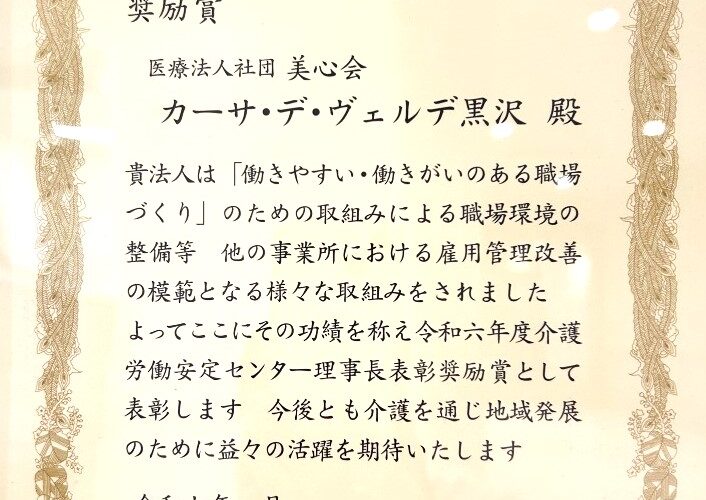 奨励賞
医療法人社団 美心会
カーサ・デ・ヴェルデ黒沢 殿
貴法人は「働きやすい・働きがいのある職場
づくり」のための取組みによる職場環境の
整備等　他の事業所における雇用管理改善
の模範となる様々な取組みをされました
よってここにその功績を称え令和六年度介護
労働安定センター理事長表彰奨励賞として
表彰します　今後とも介護を通じ地域発展
のために益々の活躍を期待いたします